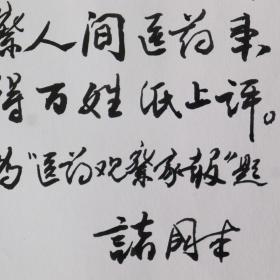 察人间医药事
得百姓纸上评。
为“医药观察家报”题
諸国本